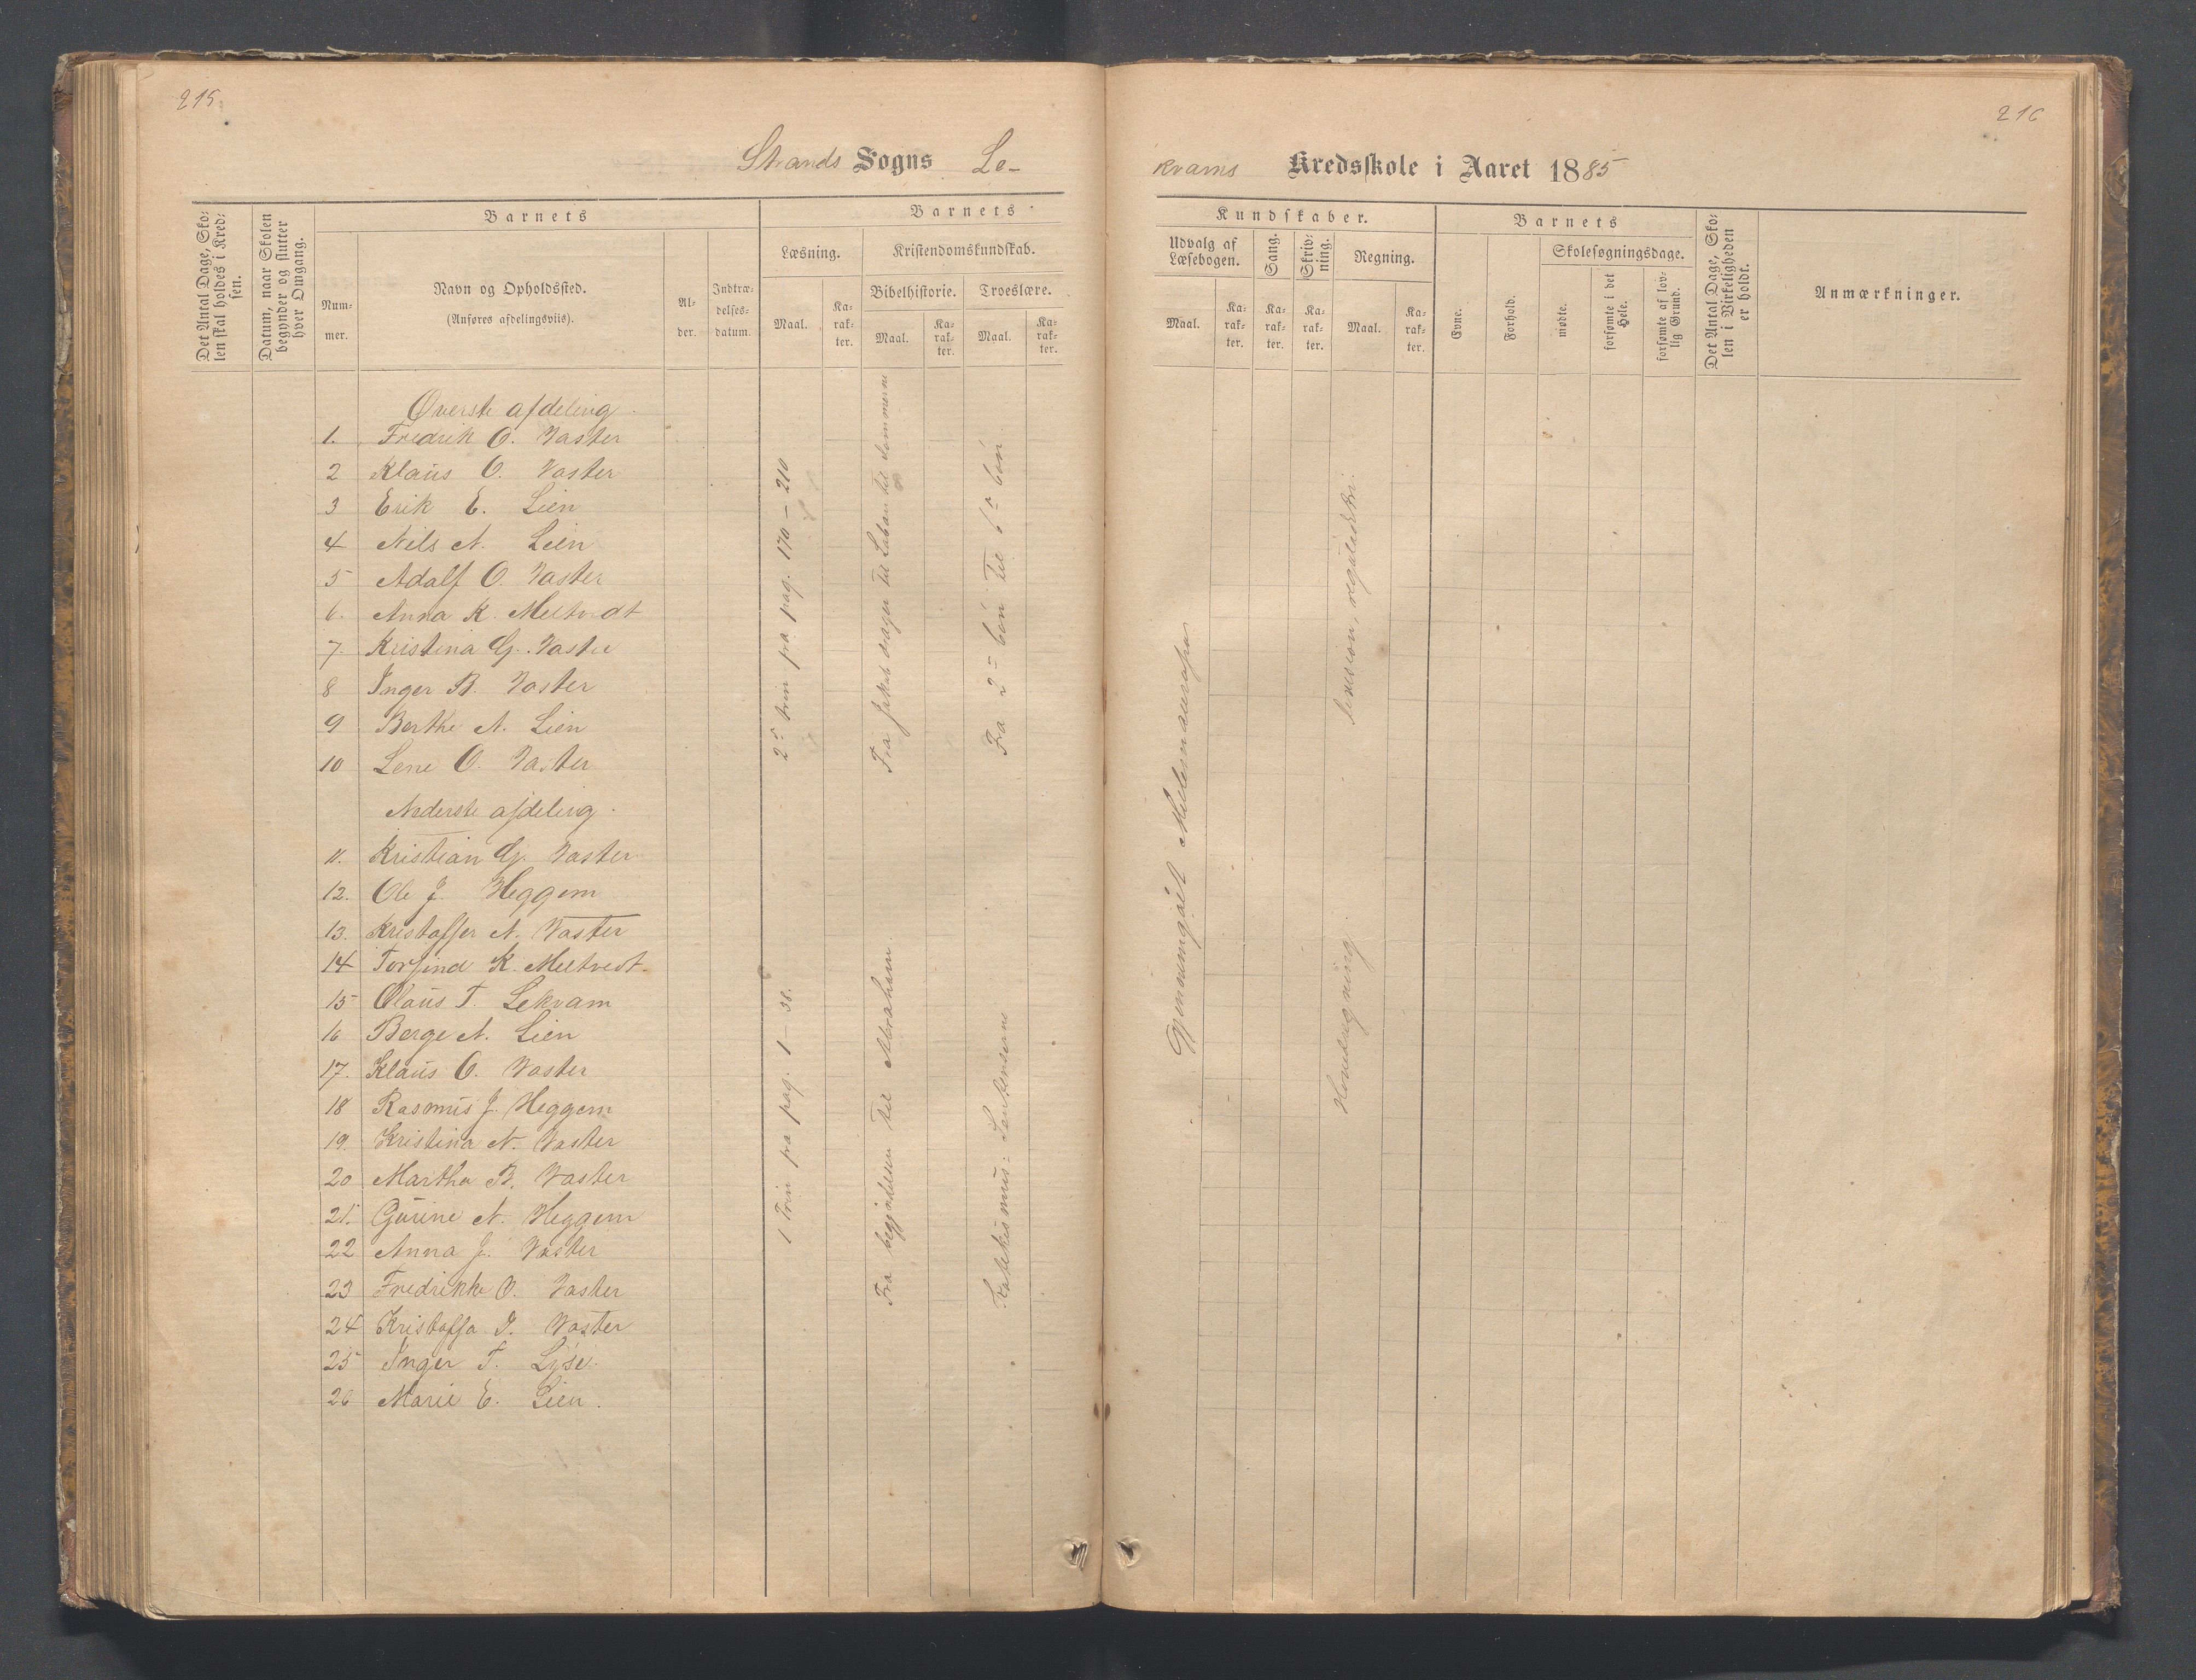 215
216
Strands Sogns Le-
kvams Kredsskole i Aaret 1885
Det Antal Dage, Sko-
len skal holdes i Kred-
sen.
Datum, naar Skolen
begynder og slutter
hver Omgang.
Barnets
Num-
mer.
Navn og Opholdssted.
(Anføres afdelingsviis).
Al-
der.
Indtræ-
delses-
datum.
Barnets
Læsning.
Maal.
Ka-
rak-
ter.
Kristendomskundskab.
Bibelhistorie.
Maal.
Ka-
rak-
ter.
Troeslære.
Maal.
Ka-
rak-
ter.
Kundskaber.
Udvalg af
Læsebogen.
Maal.
Ka-
rak-
ter.
Sang.
Ka-
rak-
ter.
Skriv-
ning.
Ka-
rak-
ter.
Regning.
Maal.
Ka-
rak-
ter.
Barnets
Evne.
Forhold.
Skolesøgningsdage.
mødte.
forsømte i det
Hele.
forsømte af lov-
lig Grund.
Det Antal Dage, Sko-
len i Virkeligheden
er holdt.
Anmærkninger.
Øverste afdeling.
1. Fredrik O. Vaster
2 Klaus O. Vaster
3 Erik E. Lien
4 Nils N. Lien
5 Adolf O. Vaster
6. Anna K. Meltvedt
7. Kristina G. Vaster
8 Inger B. Vaster
9 Berthe N. Lien
10 Lene O. Vaster
Nederste afdeling.
11. Kristian G. Vaster
12. Ole J. Heggem
13. Kristoffer N. Vaster
14 Torfind K. Meltvedt.
15 Olaus T. Lekvam
16 Berge N. Lien
17. Klaus O. Vaster
18 Rasmus J. Heggem
19. Kristina N. Vaster
20 Martha B. Vaster
21. Gurine N. Heggem
22 Anna J. Vaster
23 Fredrikke O. Vaster
24 Kristoffa I. Vaster
25 Inger T. Lyse.
26 Marie E. Lien.
2s trin fra pag. 170 – 210
Fra Jakob drager til Laban til Drømmene
Fra 2= bøn til 6= bøn
1 Trin fra pag. 1 – 38.
Fra begyndelsen til Abraham
Katekismus: Sentenserne
Gjennemgaaet
reguladetri.
Hovedregning.